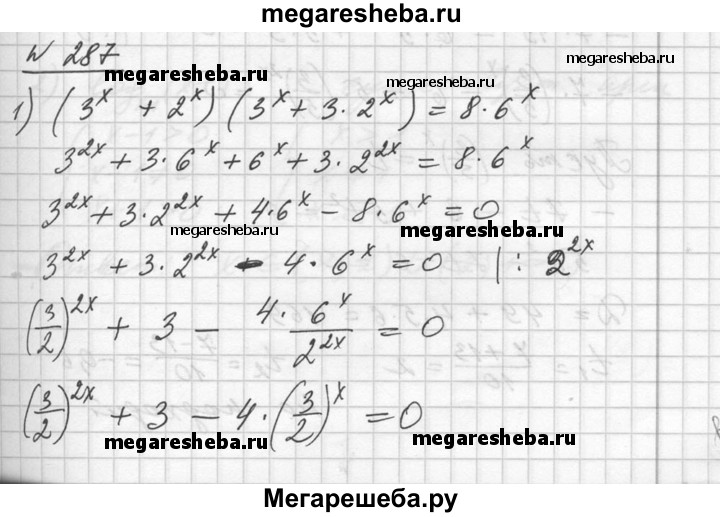 megaresheba.ru
N 287
megaresheba.ru
megaresheba.ru
megaresheba.ru
1) (3^x + 2^x) (3^x + 3·2^x) = 8·6^x
3^{2x} + 3·6^x + 6^x + 3·2^{2x} = 8·6^x
3^{2x} + 3·2^{2x} + 4·6^x - 8·6^x = 0
megaresheba.ru
megaresheba.ru
3^{2x} + 3·2^{2x} - 4·6^x = 0 |: 2^{2x}
(3/2)^{2x} + 3 - 4·6^x/2^{2x} = 0
(3/2)^{2x} + 3 - 4·(3/2)^x = 0
megaresheba.ru
megaresheba.ru
Мегарешеба.ру